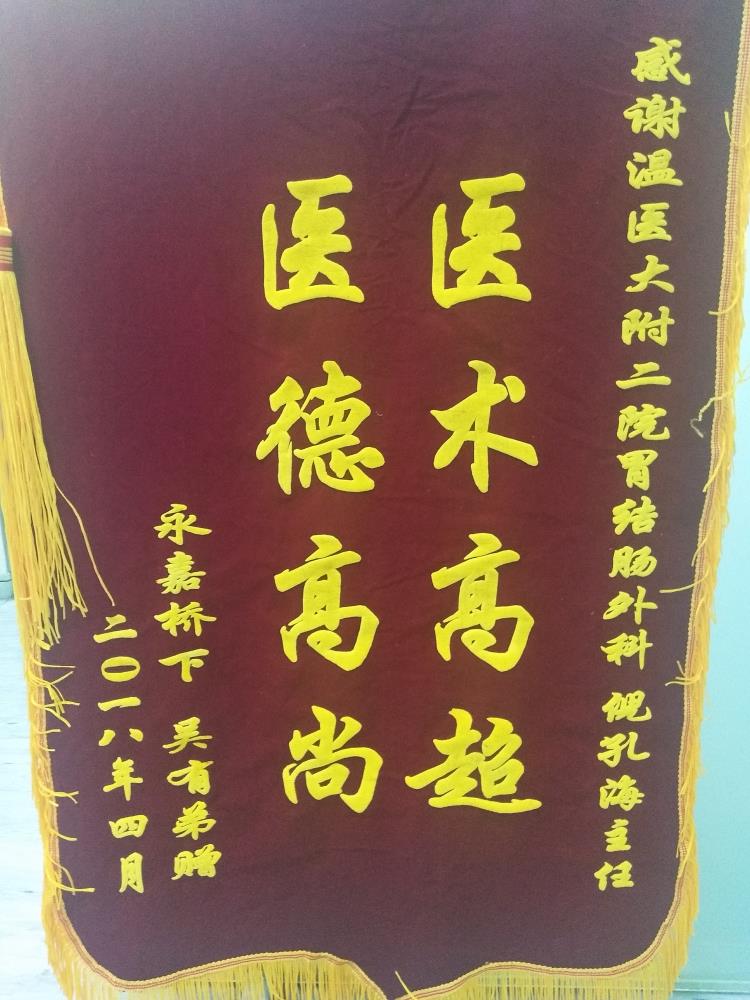 感谢温医大附二院胃结肠外科 倪孔海主任
医术高超
医德高尚
永嘉桥下 吴有弟赠
二〇一八年四月